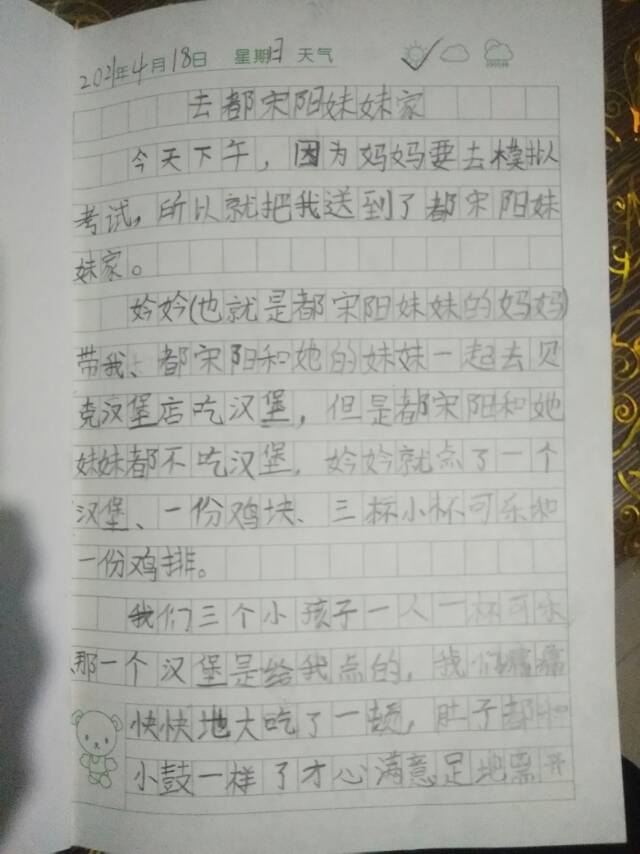 2021年4月18日 星期日 天气
去都宋阳妹妹家
今天下午，因为妈妈要去模拟
考试，所以就把我送到了都宋阳妹
妹家。
妗妗(也就是都宋阳妹妹的妈妈)
带我、都宋阳和她的妹妹一起去贝
克汉堡店吃汉堡，但是都宋阳和她
妹妹都不吃汉堡，妗妗就点了一个
汉堡、一份鸡块、三杯小杯可乐和
一份鸡排。
我们三个小孩子一人一杯可乐
那一个汉堡是给我点的，我们痛痛
快快地大吃了一顿，肚子都和
小鼓一样了才心满意足地离开